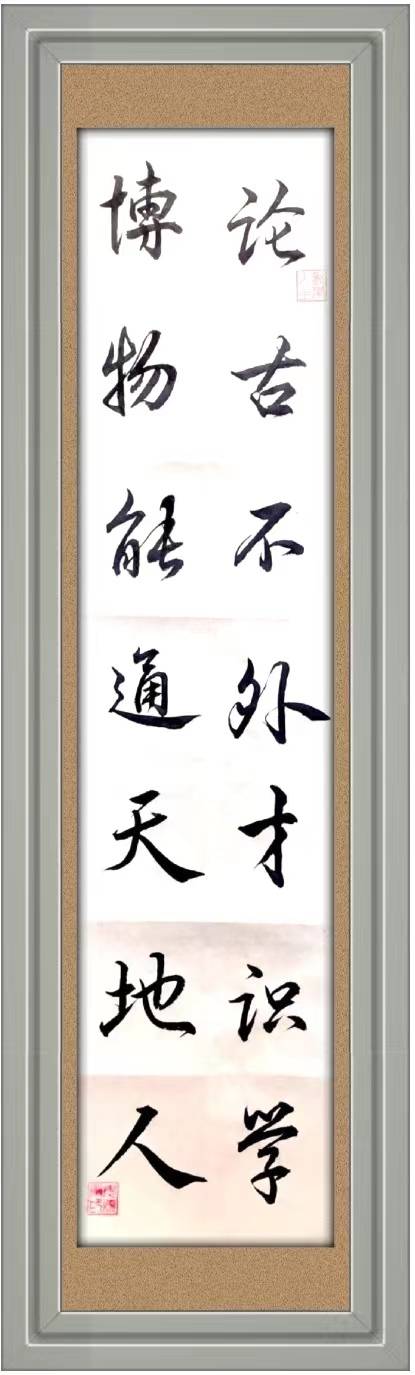 论古不外才识学
博物能通天地人